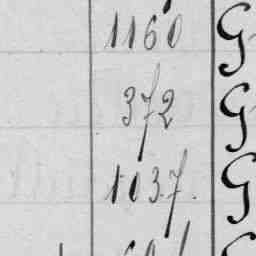 1160 G
372 G
1037. G